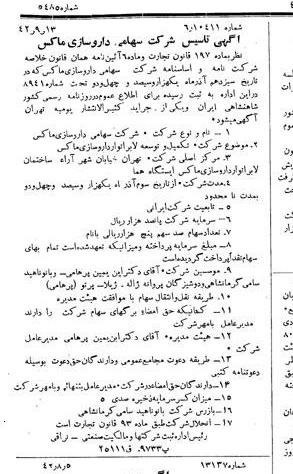 شماره ۶٫۱۰۴۱۱ ۴۲٫۹٫۱۳
آگهی تاسیس شرکت سهامی داروسازی ماکس
نظر بماده ۱۹۷ قانون تجارت وماده ۶ آئین نامه همان قانون خلاصه
شرکت نامه و اساسنامه شرکت سهامی داروسازی ماکس که در
تاریخ سیزدهم آذرماه یکهزار وسیصد و چهل ودو تحت شماره ۸۹۴۱
در این اداره به ثبت رسیده برای اطلاع عموم در روزنامه رسمی کشور
شاهنشاهی ایران ویکی از جراید کثیرالانتشار یومیه تهران
آگهی میشود
۱ – نام و نوع شرکت – شرکت سهامی داروسازی ماکس
۲– موضوع شرکت – تکمیل و توسعه لابراتوار داروسازی ماکس
۳– مرکز اصلی شرکت – تهران خیابان شهر آراء ساختمان
لابراتوار داروسازی ماکس ایستگاه هما
۴– مدت شرکت – از تاریخ سوم آذر ماه یکهزار وسیصد وچهل ودو
بمدت نا محدود
۵ – تابعیت شرکت ایرانی
۶ – سرمایه شرکت پانصد هزار ریال
۷ – تعداد سهام صد سهم پنج هزار ریالی بانام
۸ – مبلغ سرمایه پرداخته ومیزانیکه تعهد شده است تمام بهای
سهام نقداً پرداخت گردیده است
۹ – موسسین شرکت – آقای دکتر ابن یمین پرهامی – وبانو ناهید
سامی کرمانشاهی ودوشیزگان پروانه ژاله – ژیلا – پرتو (پرهامی)
۱۰ – طریقه نقل وانتقال سهام با موافقت هیئت مدیره
۱۱ – کسانیکه حق امضاء برگهای سهام شرکت را دارند
مدیرعامل بامهر شرکت
۱۲ – هیئت مدیره – آقای دکتر ابن یمین پرهامی مدیرعامل
شرکت
۱۳ – طریقه دعوت مجامع عمومی ودارندگان حق دعوت بوسیله
دعوتنامه کتبی
۱۴ – دارندگان حق امضاء در شرکت – مدیرعامل بتنهائی وبامهر شرکت
۱۵ – میزان کسر سرمایه ذخیره صدی ۵
۱۶ – بازرس شرکت بانو ناهید سامی کرمانشاهی
۱۷ – انحلال شرکت طبق ماده ۹۳ قانون تجارت است
رئیس اداره ثبت شرکتها ومالکیت صنعتی – نراقی
پ – ۹۷۳۳ ف – ۲۵۱۱۱
شماره ۱۳۱۳۷ ۴۲٫۸٫۵